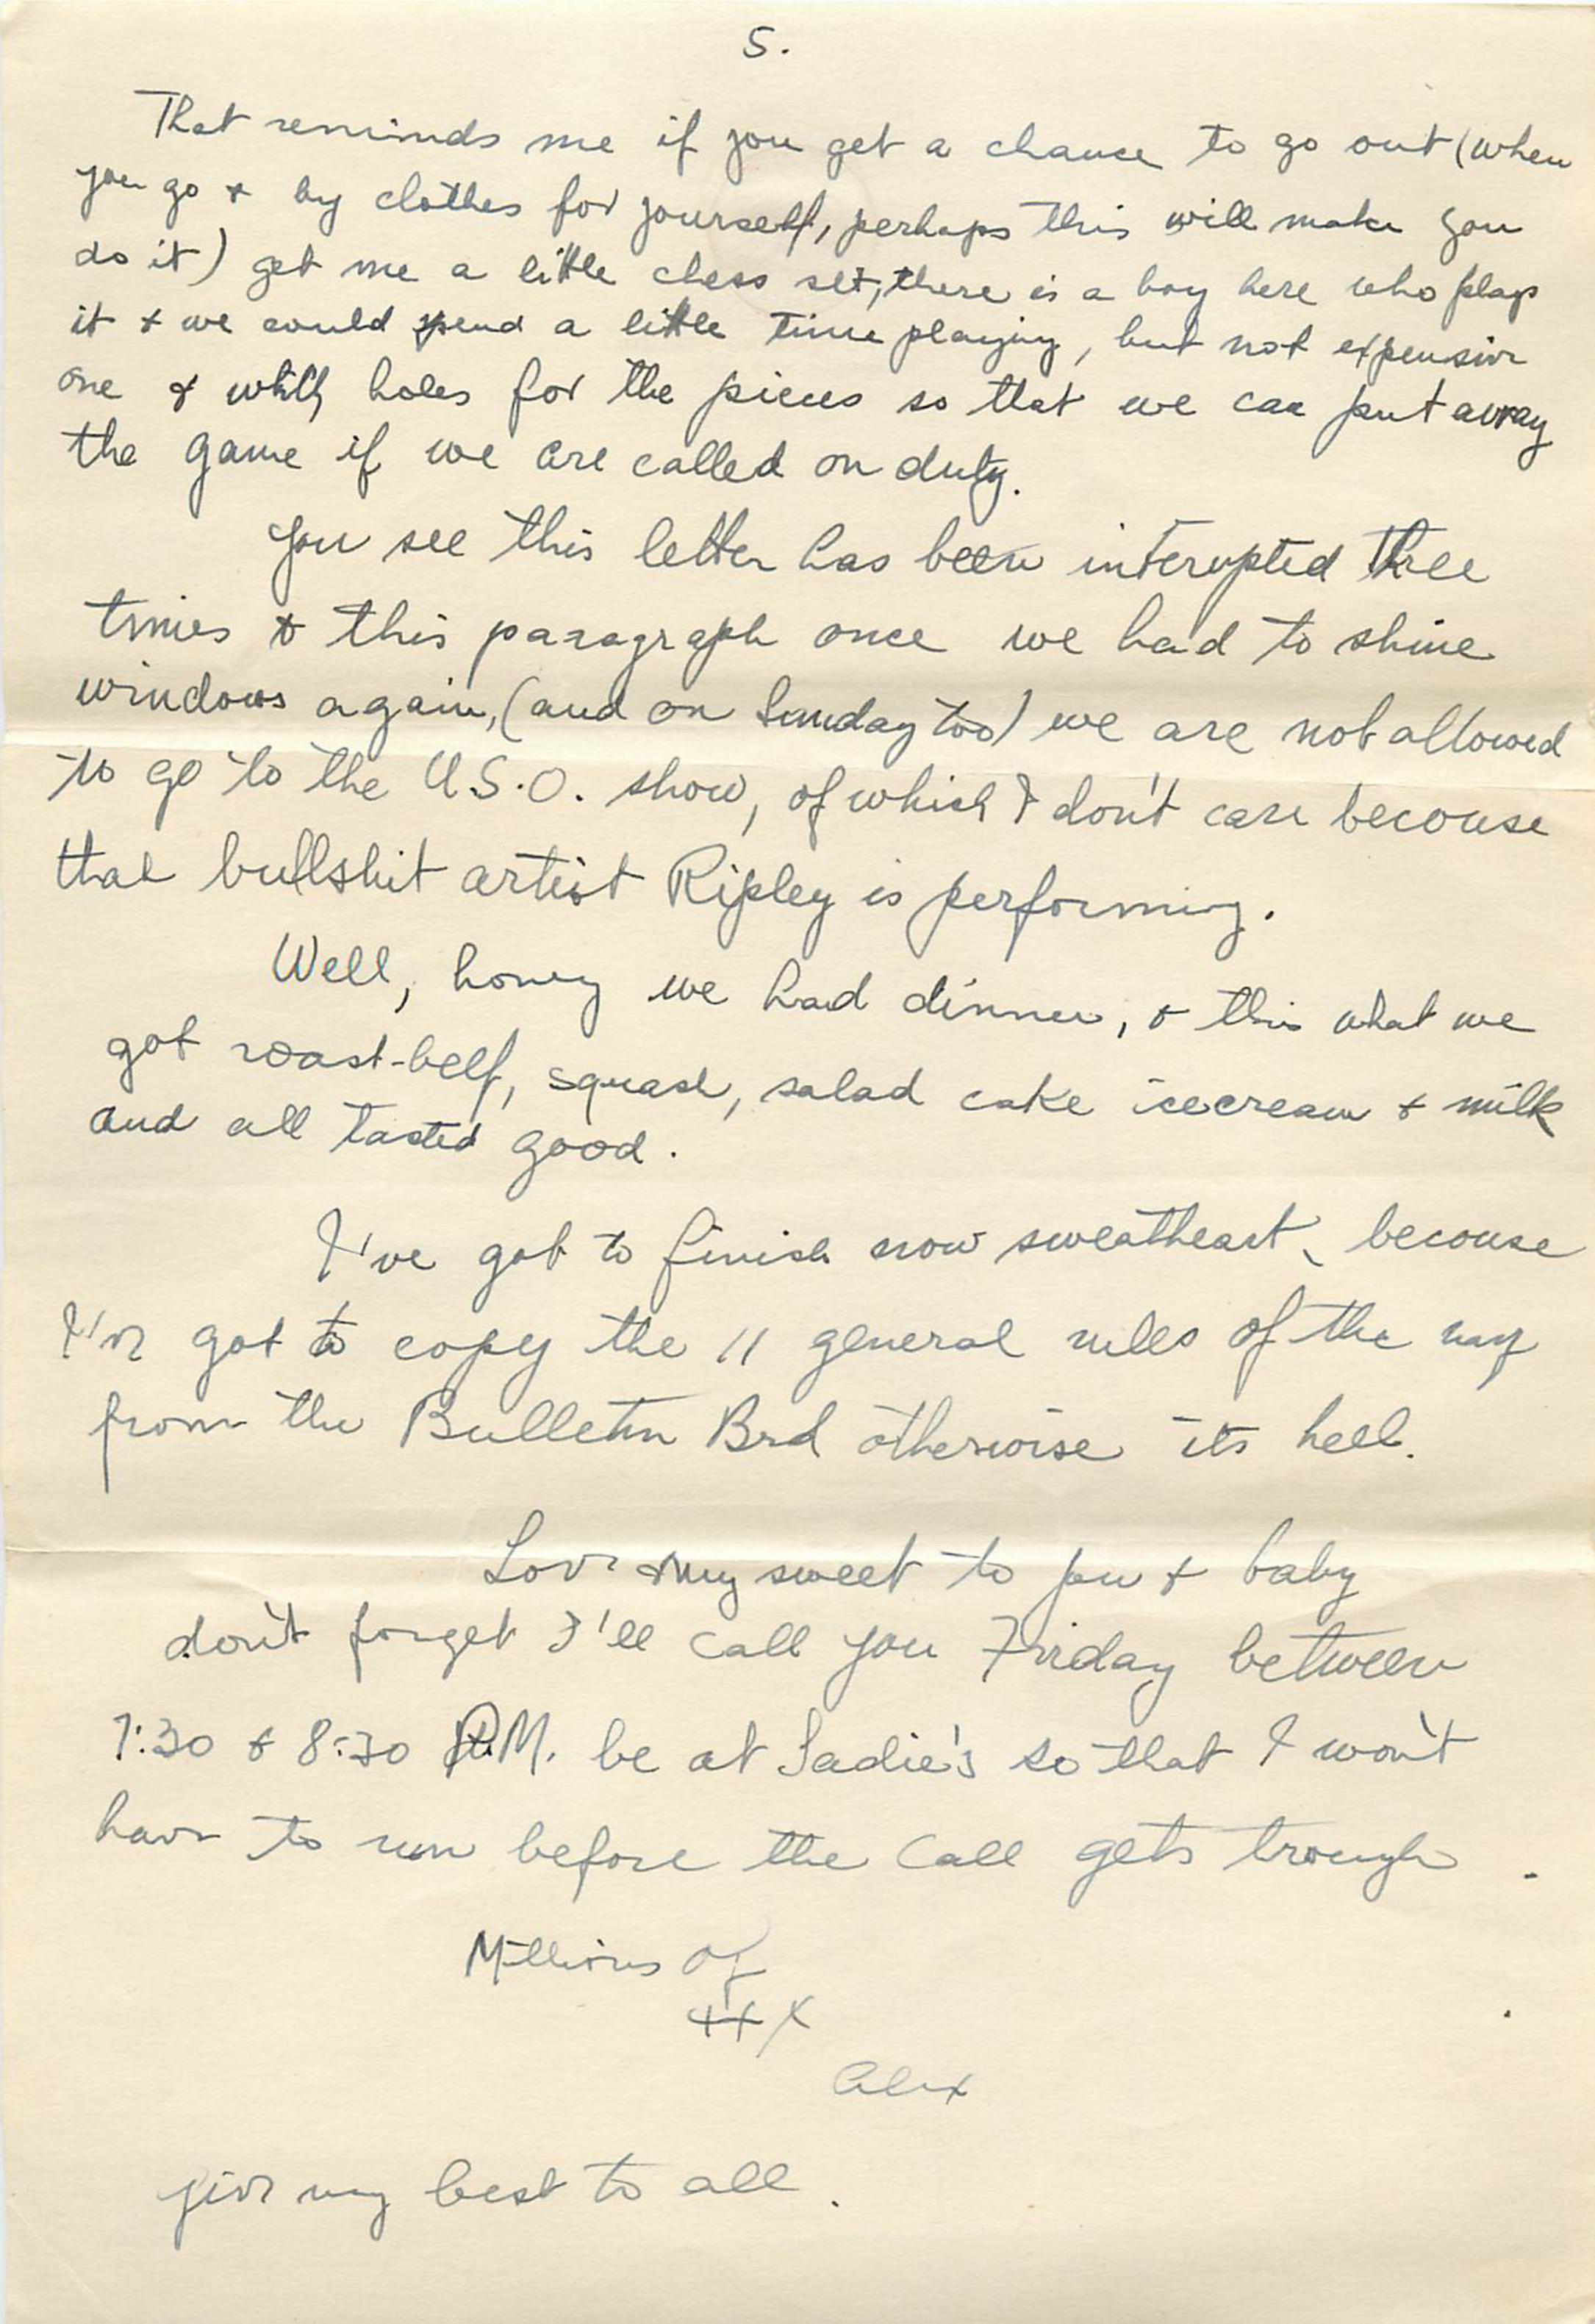 5.
That reminds me if you get a chance to go out (when
you go & by clothes for yourself, perhaps this will make you
do it) get me a little chess set, there is a boy here who plays
it & we could spend a little time playing, but not expensive
one & with holes for the pieces so that we can put away
the game if we are called on duty.
You see this letter has been interupted three
times & this paragraph once we had to shine
windows again, (and on Sunday too) we are not allowed
to go to the U.S.O. show, of which I don't care becouse
that bullshit artist Ripley is performing.
Well, honey we had dinner, & this what we
got roast-beef, squash, salad cake icecream & milk
and all tasted good.
I've got to finish now sweatheart, becouse
I've got to copy the 11 general rules of the navy
from the Bulletin Brd otherwise its hell.
Love my sweet to you & baby
don't forget I'll call you Friday between
7:30 & 8:30 P.M. be at Sadie's so that I won't
have to run before the call gets trough.
Millions of
XXX
Alex
give my best to all.